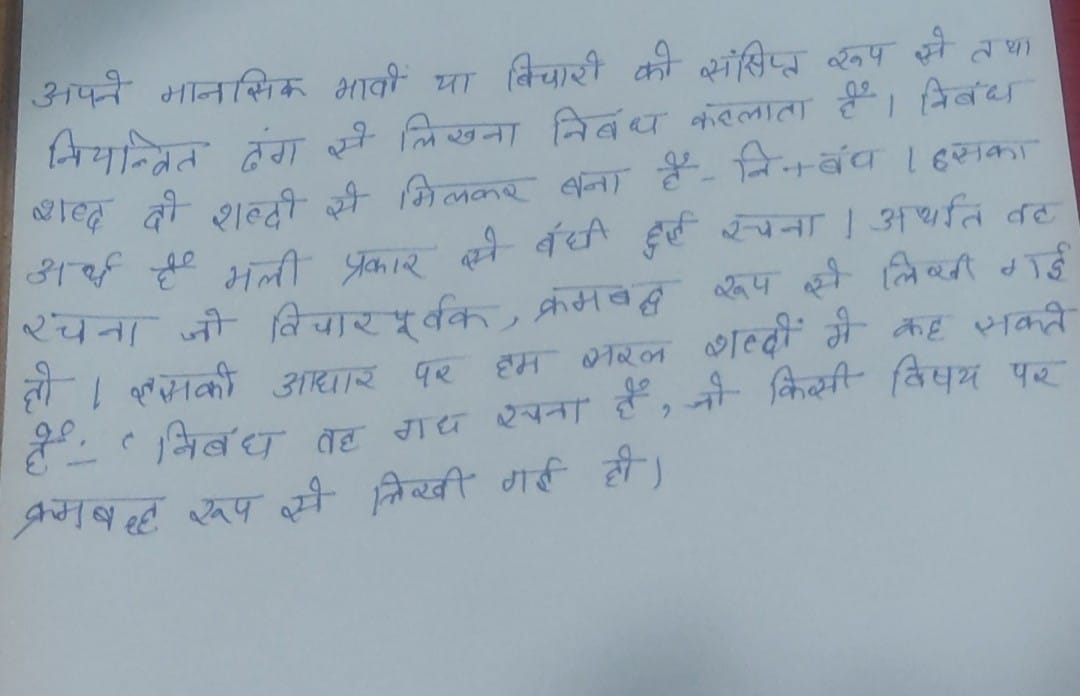 अपने मानसिक भावों या विचारो को संसिप्त रूप से तथा
नियान्त्रित ढंग से लिखना निबंध कहलाता हैं। निबंध
शब्द दो शब्दो से मिलकर बना हैं - नि + बंध । इसका
अर्थ हैं भली प्रकार से बंधी हुई रचना । अर्थात वह
रचना जो विचारपूर्वक, क्रमबद्ध रूप से लिखी गई
हो । इसकी आधार पर हम सरल शब्दों में कह सकते
हैं:- ‘निबंध वह गध रचना हैं, जो किसी विषय पर
क्रमबद्ध रूप से लिखी गई हो।